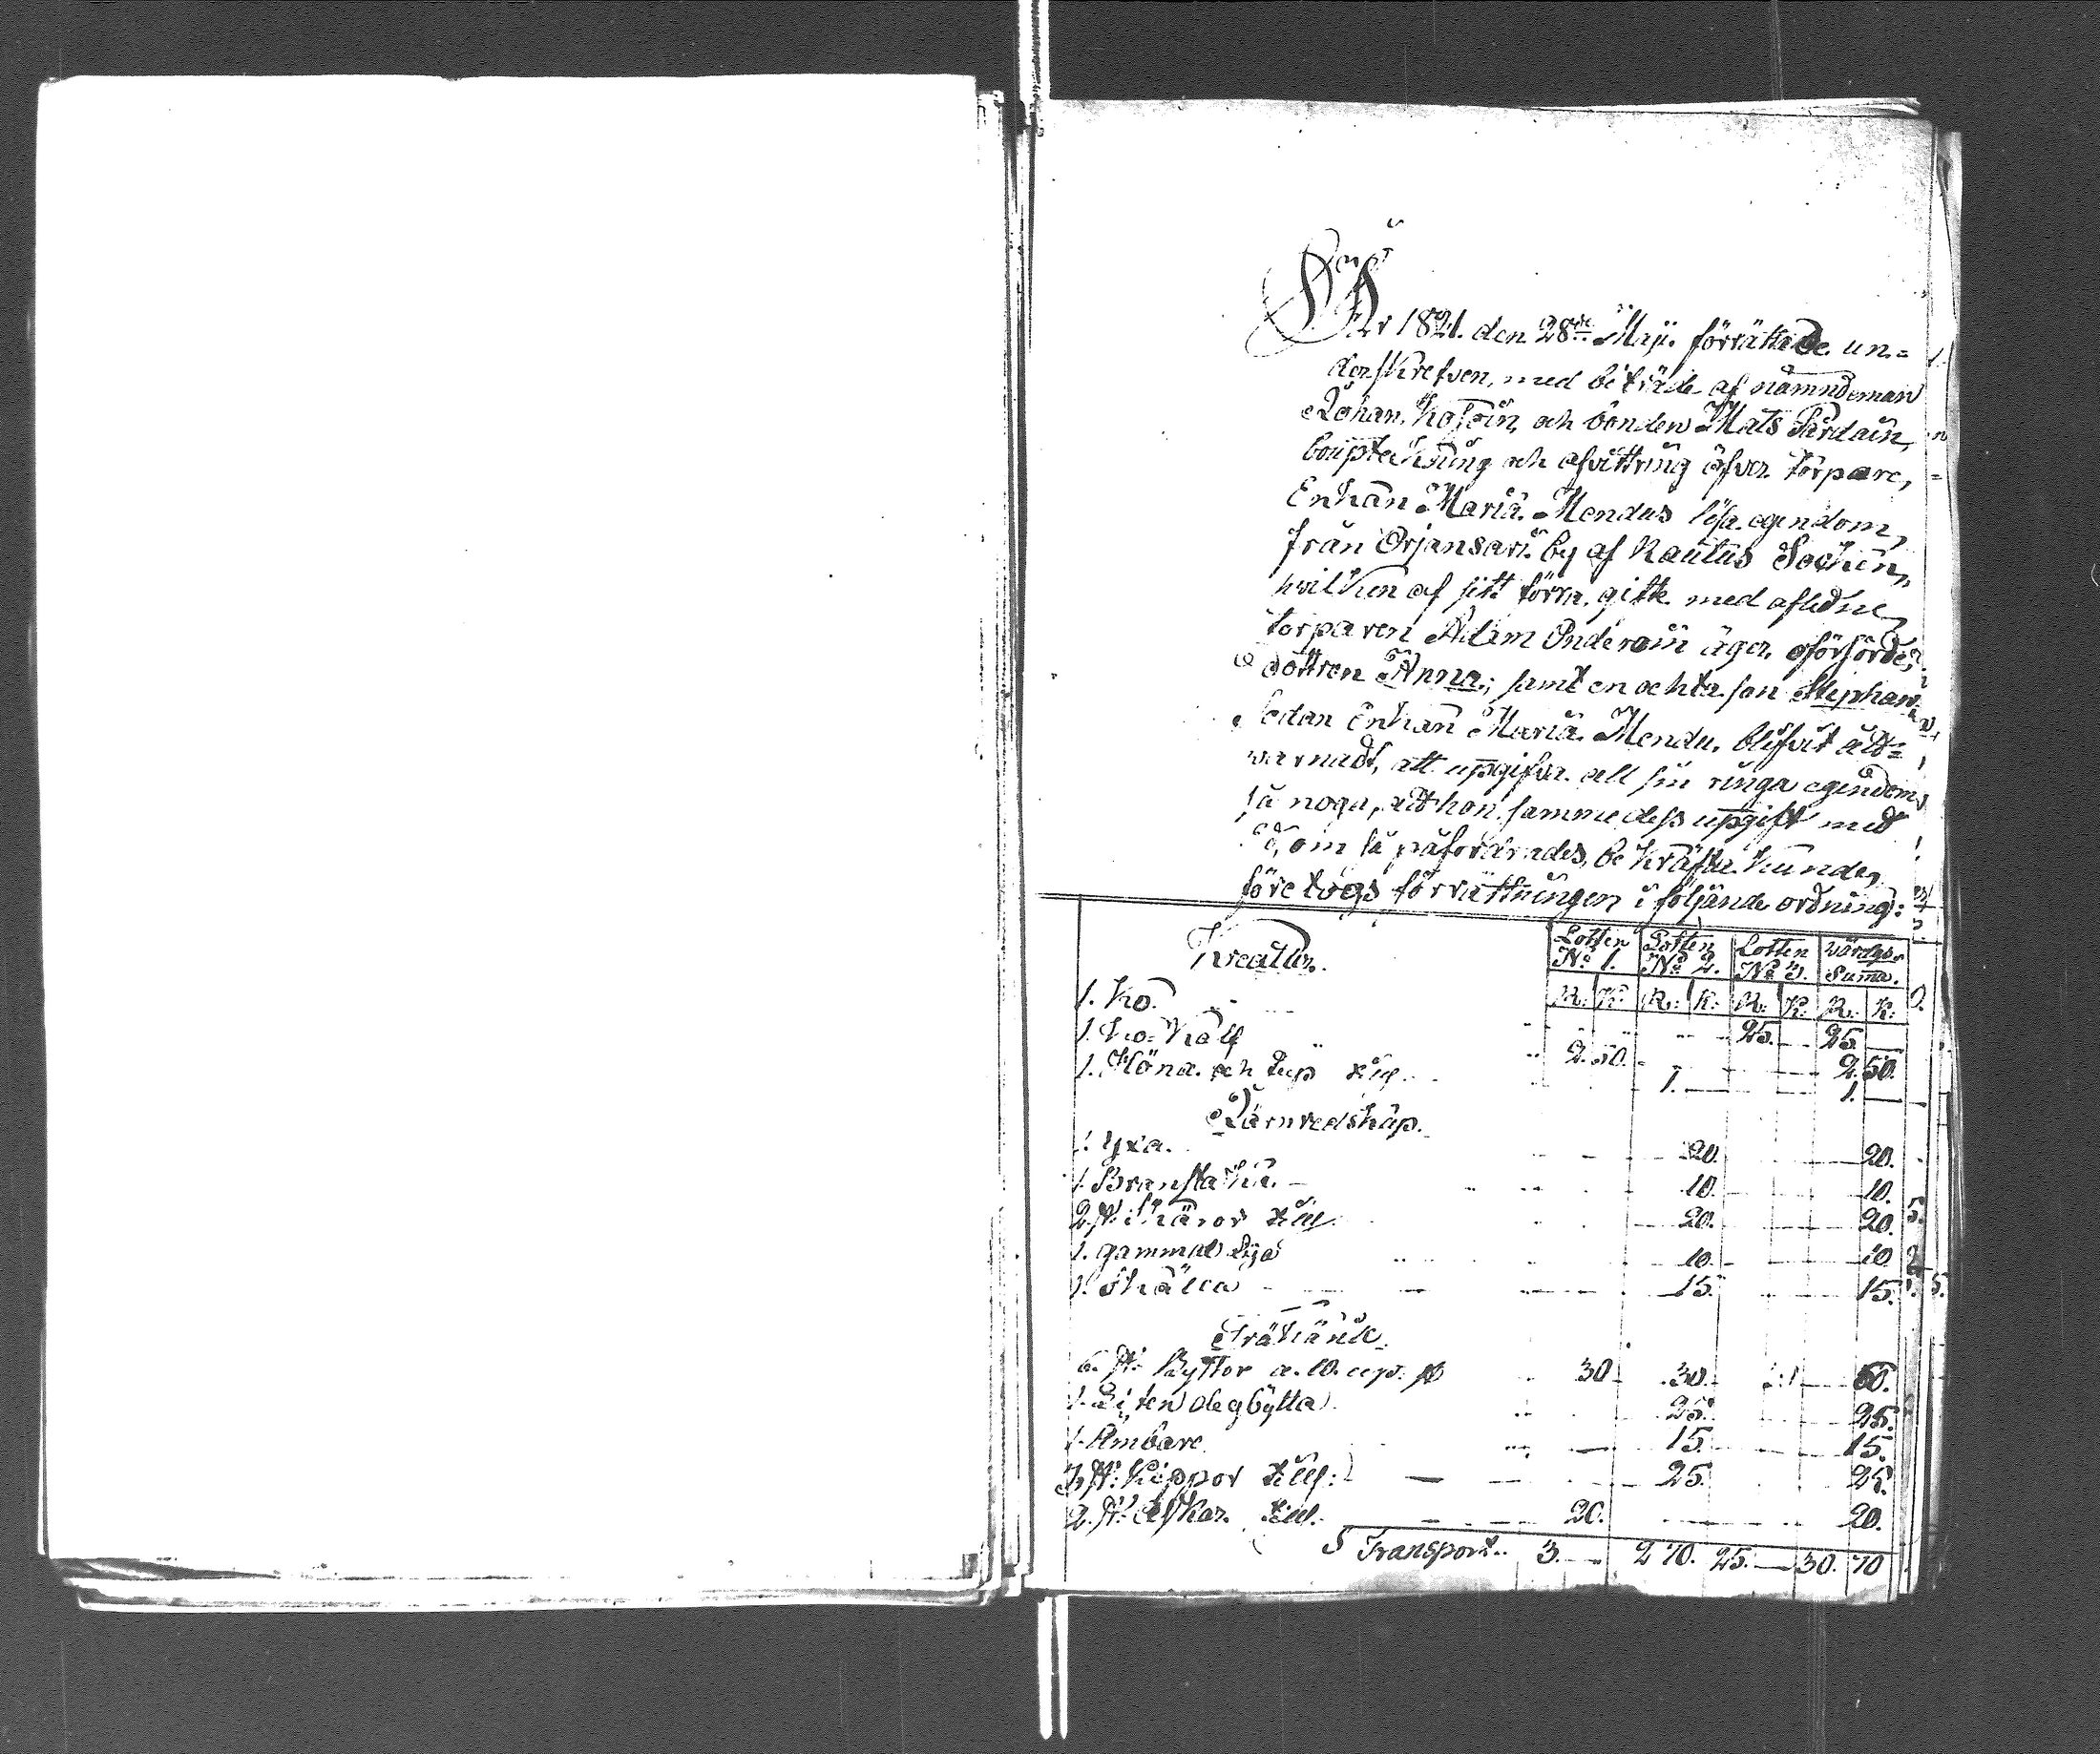 År 1821. den 28de Maji. förrättade un=
derskrefven, med biträde af nämndeman
Johan och bonden Mats Pärdäin,
bouptekning och afvittring öfver torpare,
Enkan Maria Mendus lösa egendom,
från Orjansari by af Rautus Sochen,
hvilken af sitt förra gifte med aflidne
torparen Adam Onderoin äger oförsörde,
dottren Anna; samt en ächta son Stephan,
Sedan Enkan Maria Mendu, blifvit åt=
varnadt, att upgifva all sin ringa egendom,
så noga, att hon samme dess upgift med
Ed, om så påfordrades, bekräfta kunde,
företogs förrättningen i följande ordning:
Kreatur. Lotten No 1. Lotten No 2. Lotten No 3. Värdgs Summa.
R: K: R: K: R: K: R: K:
1. Ko. 25. 25.
1. Ko-Kalf 2. 50. 2. 50.
1. Höna och tup till. 1. 1.
Järnredskap.
1. Yxa. 20. 20.
1. Branstaka. 10. 10.
2. st: Skäror till. 20. 20.
1. gammal Lya 10. 10
1. Skälla 15. 15.
Träkäril.
6. st: Byttor a. 10. cop. st 30 30. 60.
1. Liten degbytta 25. 25.
1. Ambare 15. 15.
3. st: Kippor till: 25. 25.
2. st: Askar till. 20. 20.
S Transport. 3. 2 70. 25. 30. 70